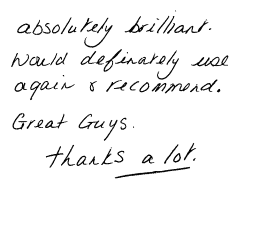 absolutely brilliant.
Would definately use
again & recommend.
Great Guys.
thanks a lot.